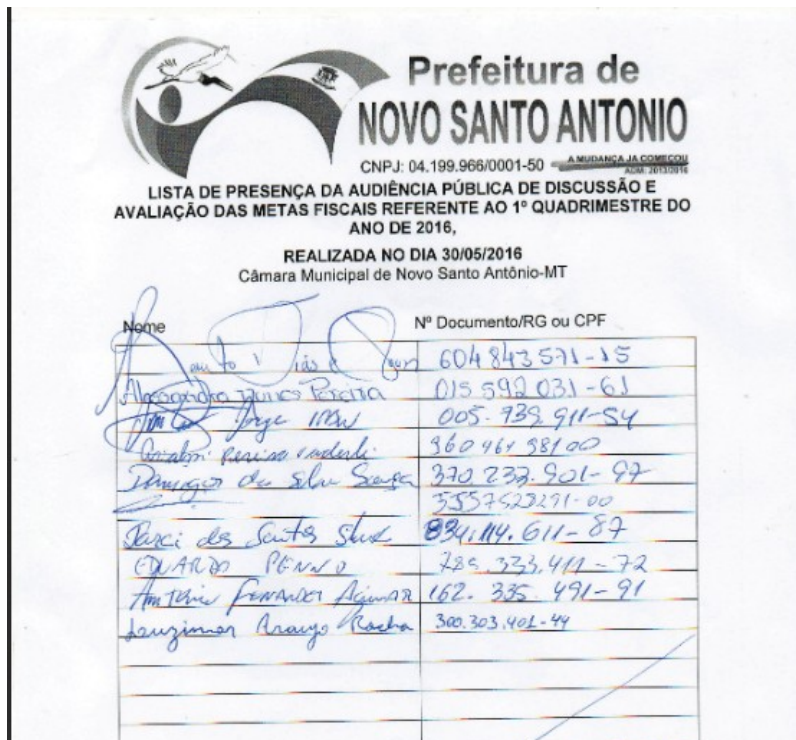 Prefeitura de
NOVO SANTO ANTONIO
CNPJ: 04.199.966/0001-50 A MUDANÇA JA COMEÇOU
ADM: 2013/2016
LISTA DE PRESENÇA DA AUDIÊNCIA PÚBLICA DE DISCUSSÃO E
AVALIAÇÃO DAS METAS FISCAIS REFERENTE AO 1º QUADRIMESTRE DO
ANO DE 2016,
REALIZADA NO DIA 30/05/2016
Câmara Municipal de Novo Santo Antônio-MT
Nome Nº Documento/RG ou CPF
604 843 571-15
Nunes Pereira 015 592 031-61
Jorge 005.939.911-54
960 461 981 00
Domingos da Silva Souza 370.233.901-97
dos Santos Silva 834.114.611-87
EDUARDO PENNO 785.333.411-72
Antonio Fernandes Aguiar 162.335.491-91
Luzimar Araujo Rocha 300.303.401-49